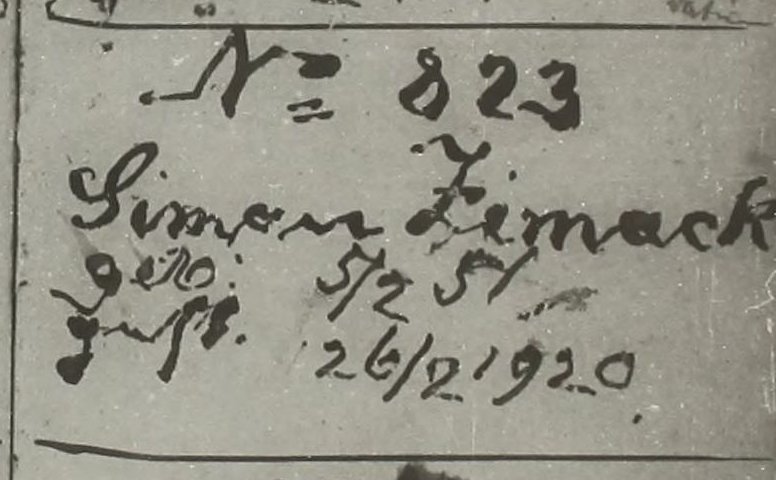 No 823
Simon Zimack
geb: 5/2 51
gest. 26/2 1920.